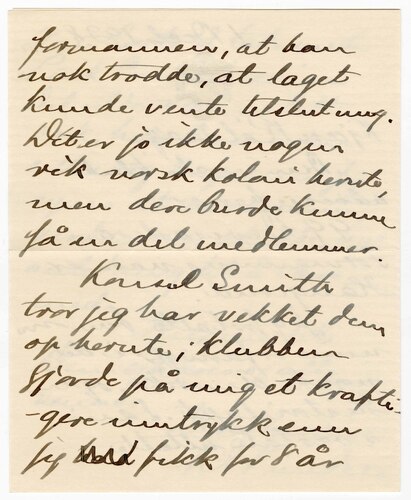 formannen, at han
nok trodde, at laget
kunde vente tilslutning.
Det er jo ikke nogen
rik norsk koloni herute,
men dere burde kunne
få en del medlemmer.
Konsul Smith
tror jeg har vekket dem
op herute; klubben
gjorde på mig et krafti-
-gere inntrykk enn
jeg fikk for 8 år